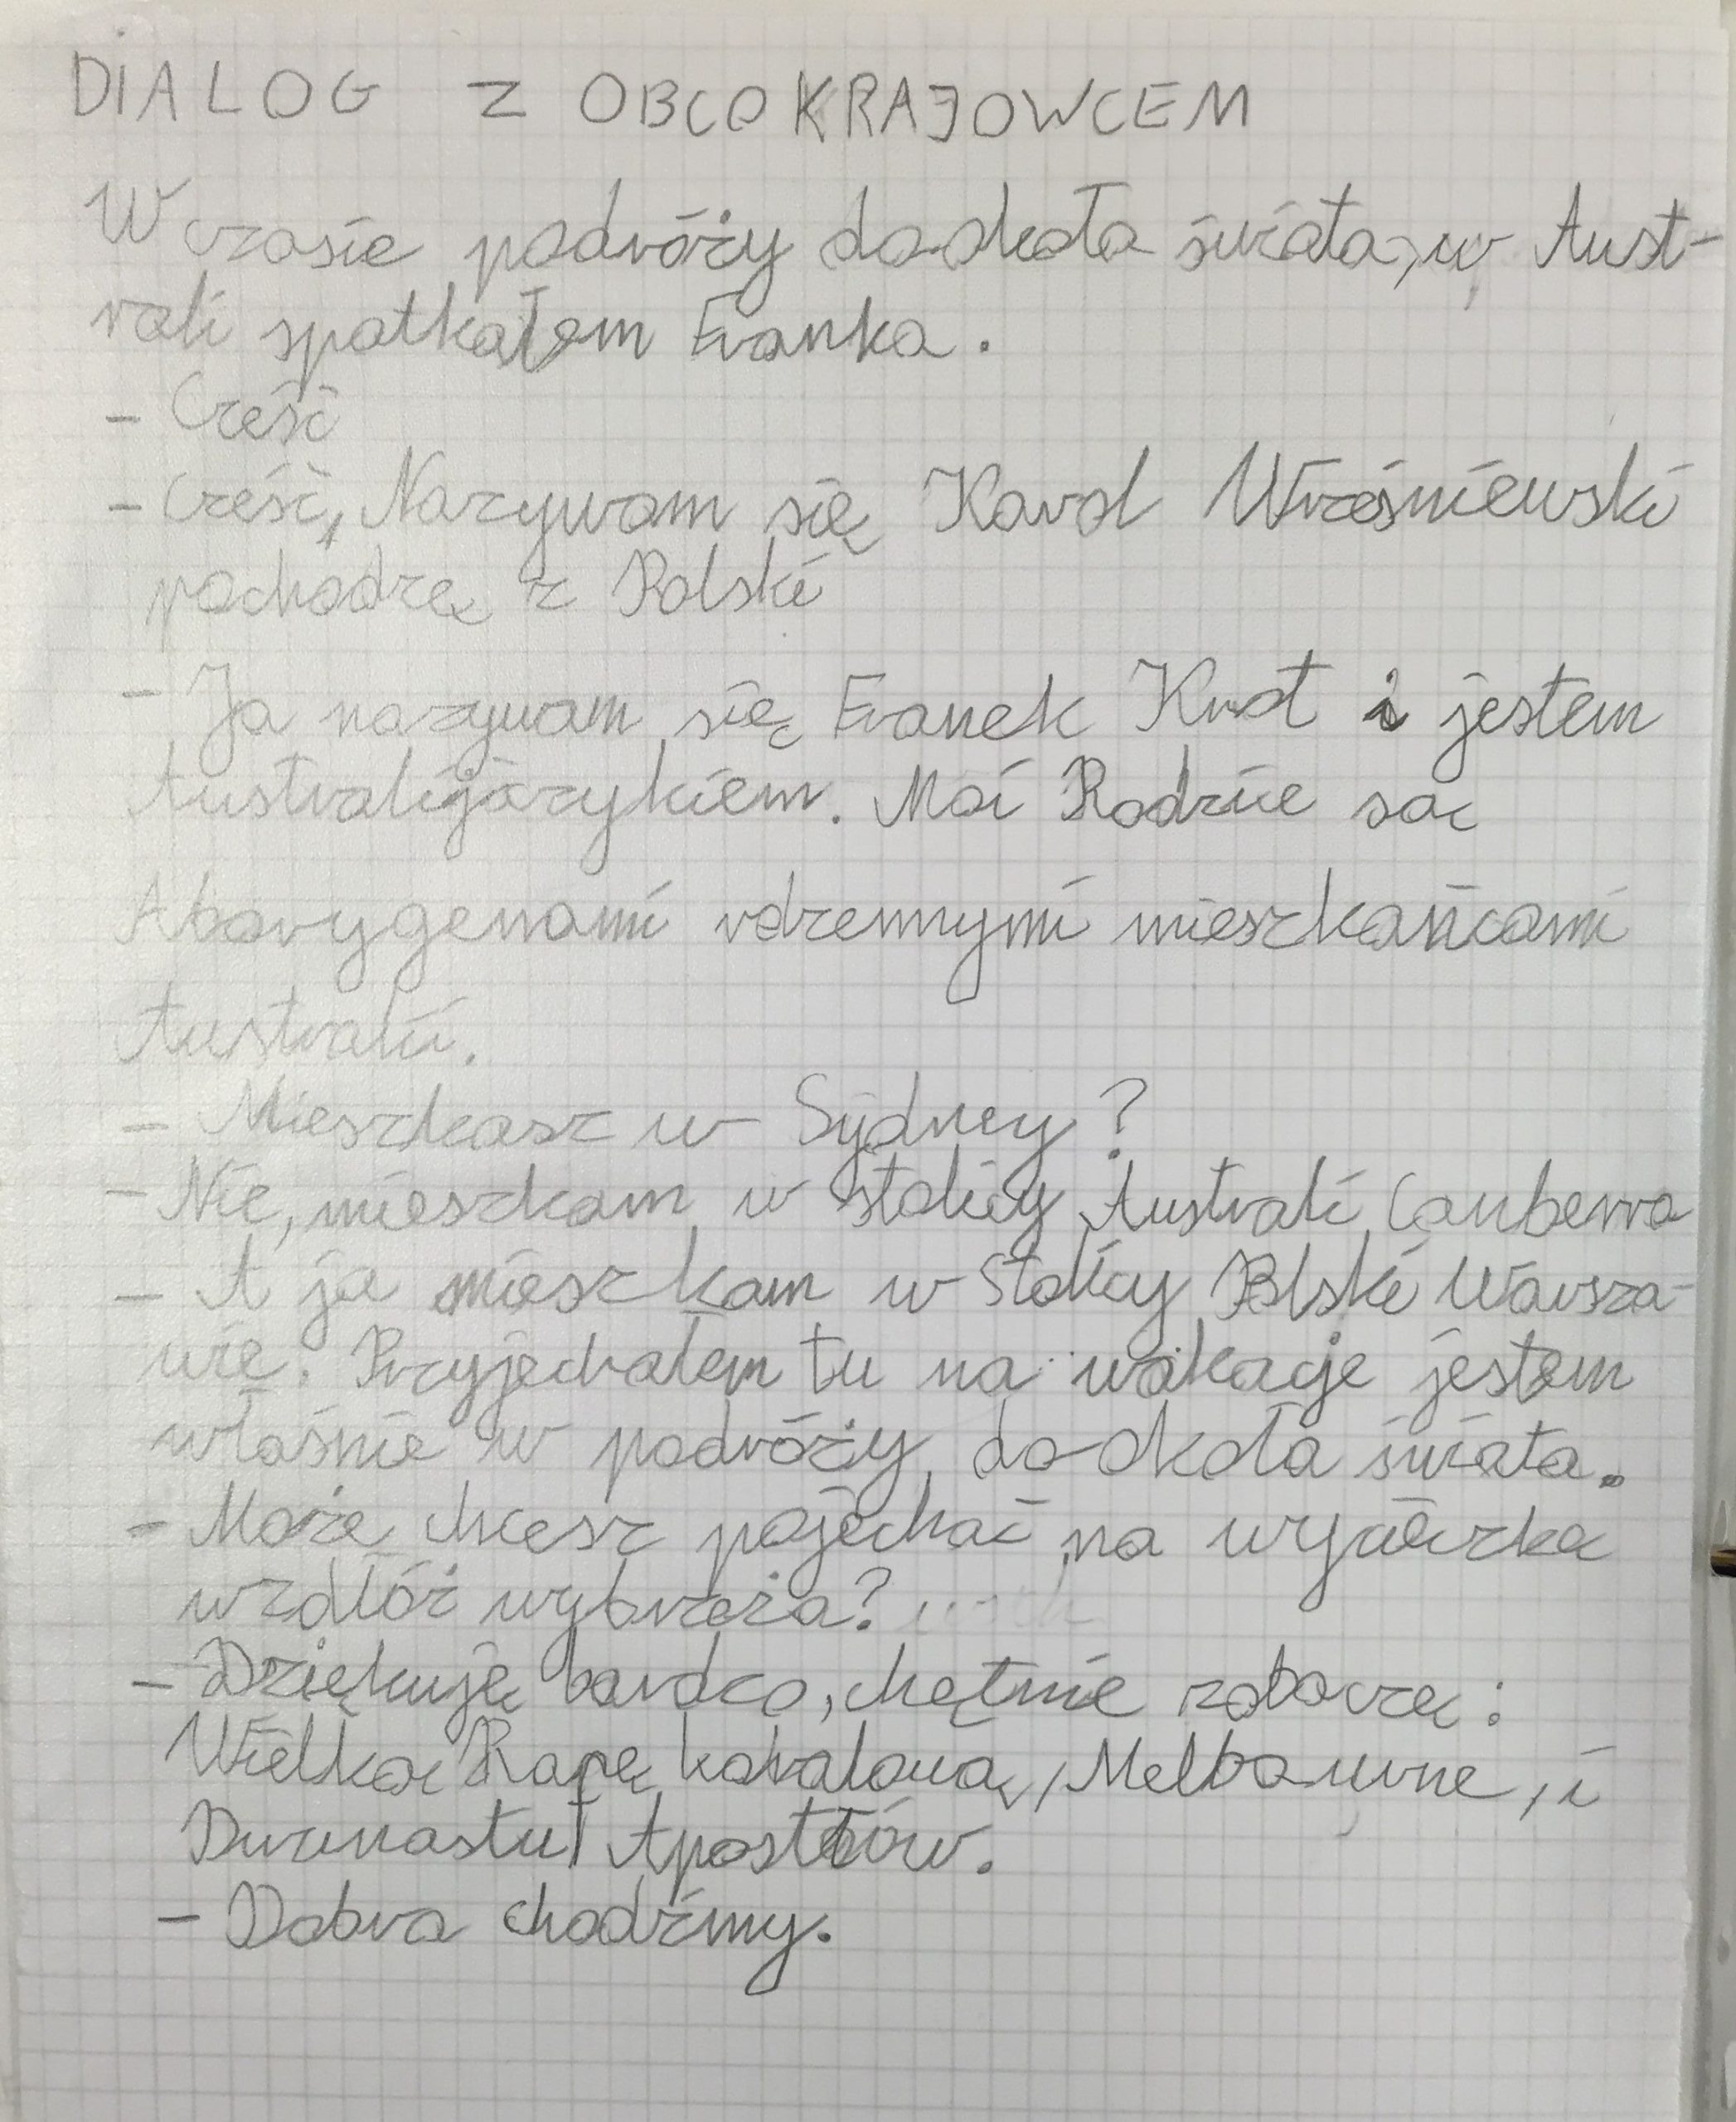 DIALOG Z OBCOKRAJOWCEM
W czasie podróży do-okoła świata, w Aust-
rali spotkałem Franka.
- Cześć
- Cześć, Nazywam się Karol Wreśniewski
pochodzę z Polski
- Ja nazywam się Franek Knot i jestem
Australijczykiem. Moi Rodzice są
Aborygenami rdzennymi mieszkańcami
Australii.
- Mieszkasz w Sydney?
- Nie, mieszkam w stolicy Australi Canberra
- A ja mieszkam w stolicy Polski Warsza-
wie. Przyjechałem tu na wakacje jestem
właśnie w podróży do-okoła świata.
- Może chcesz pojechać na wycieczkę
wzdłóż wybrzeża?
- Dziękuję bardzo, chętnie zobaczę:
Wielką Rafę koralową, Melbourne, i
Dwunastu Apostołów.
- Dobra chodźmy.